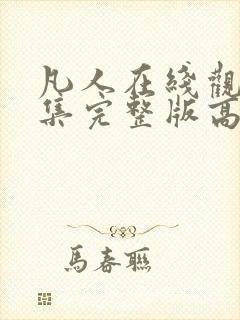 凡人在綫觀
集完整版高
馬春聯